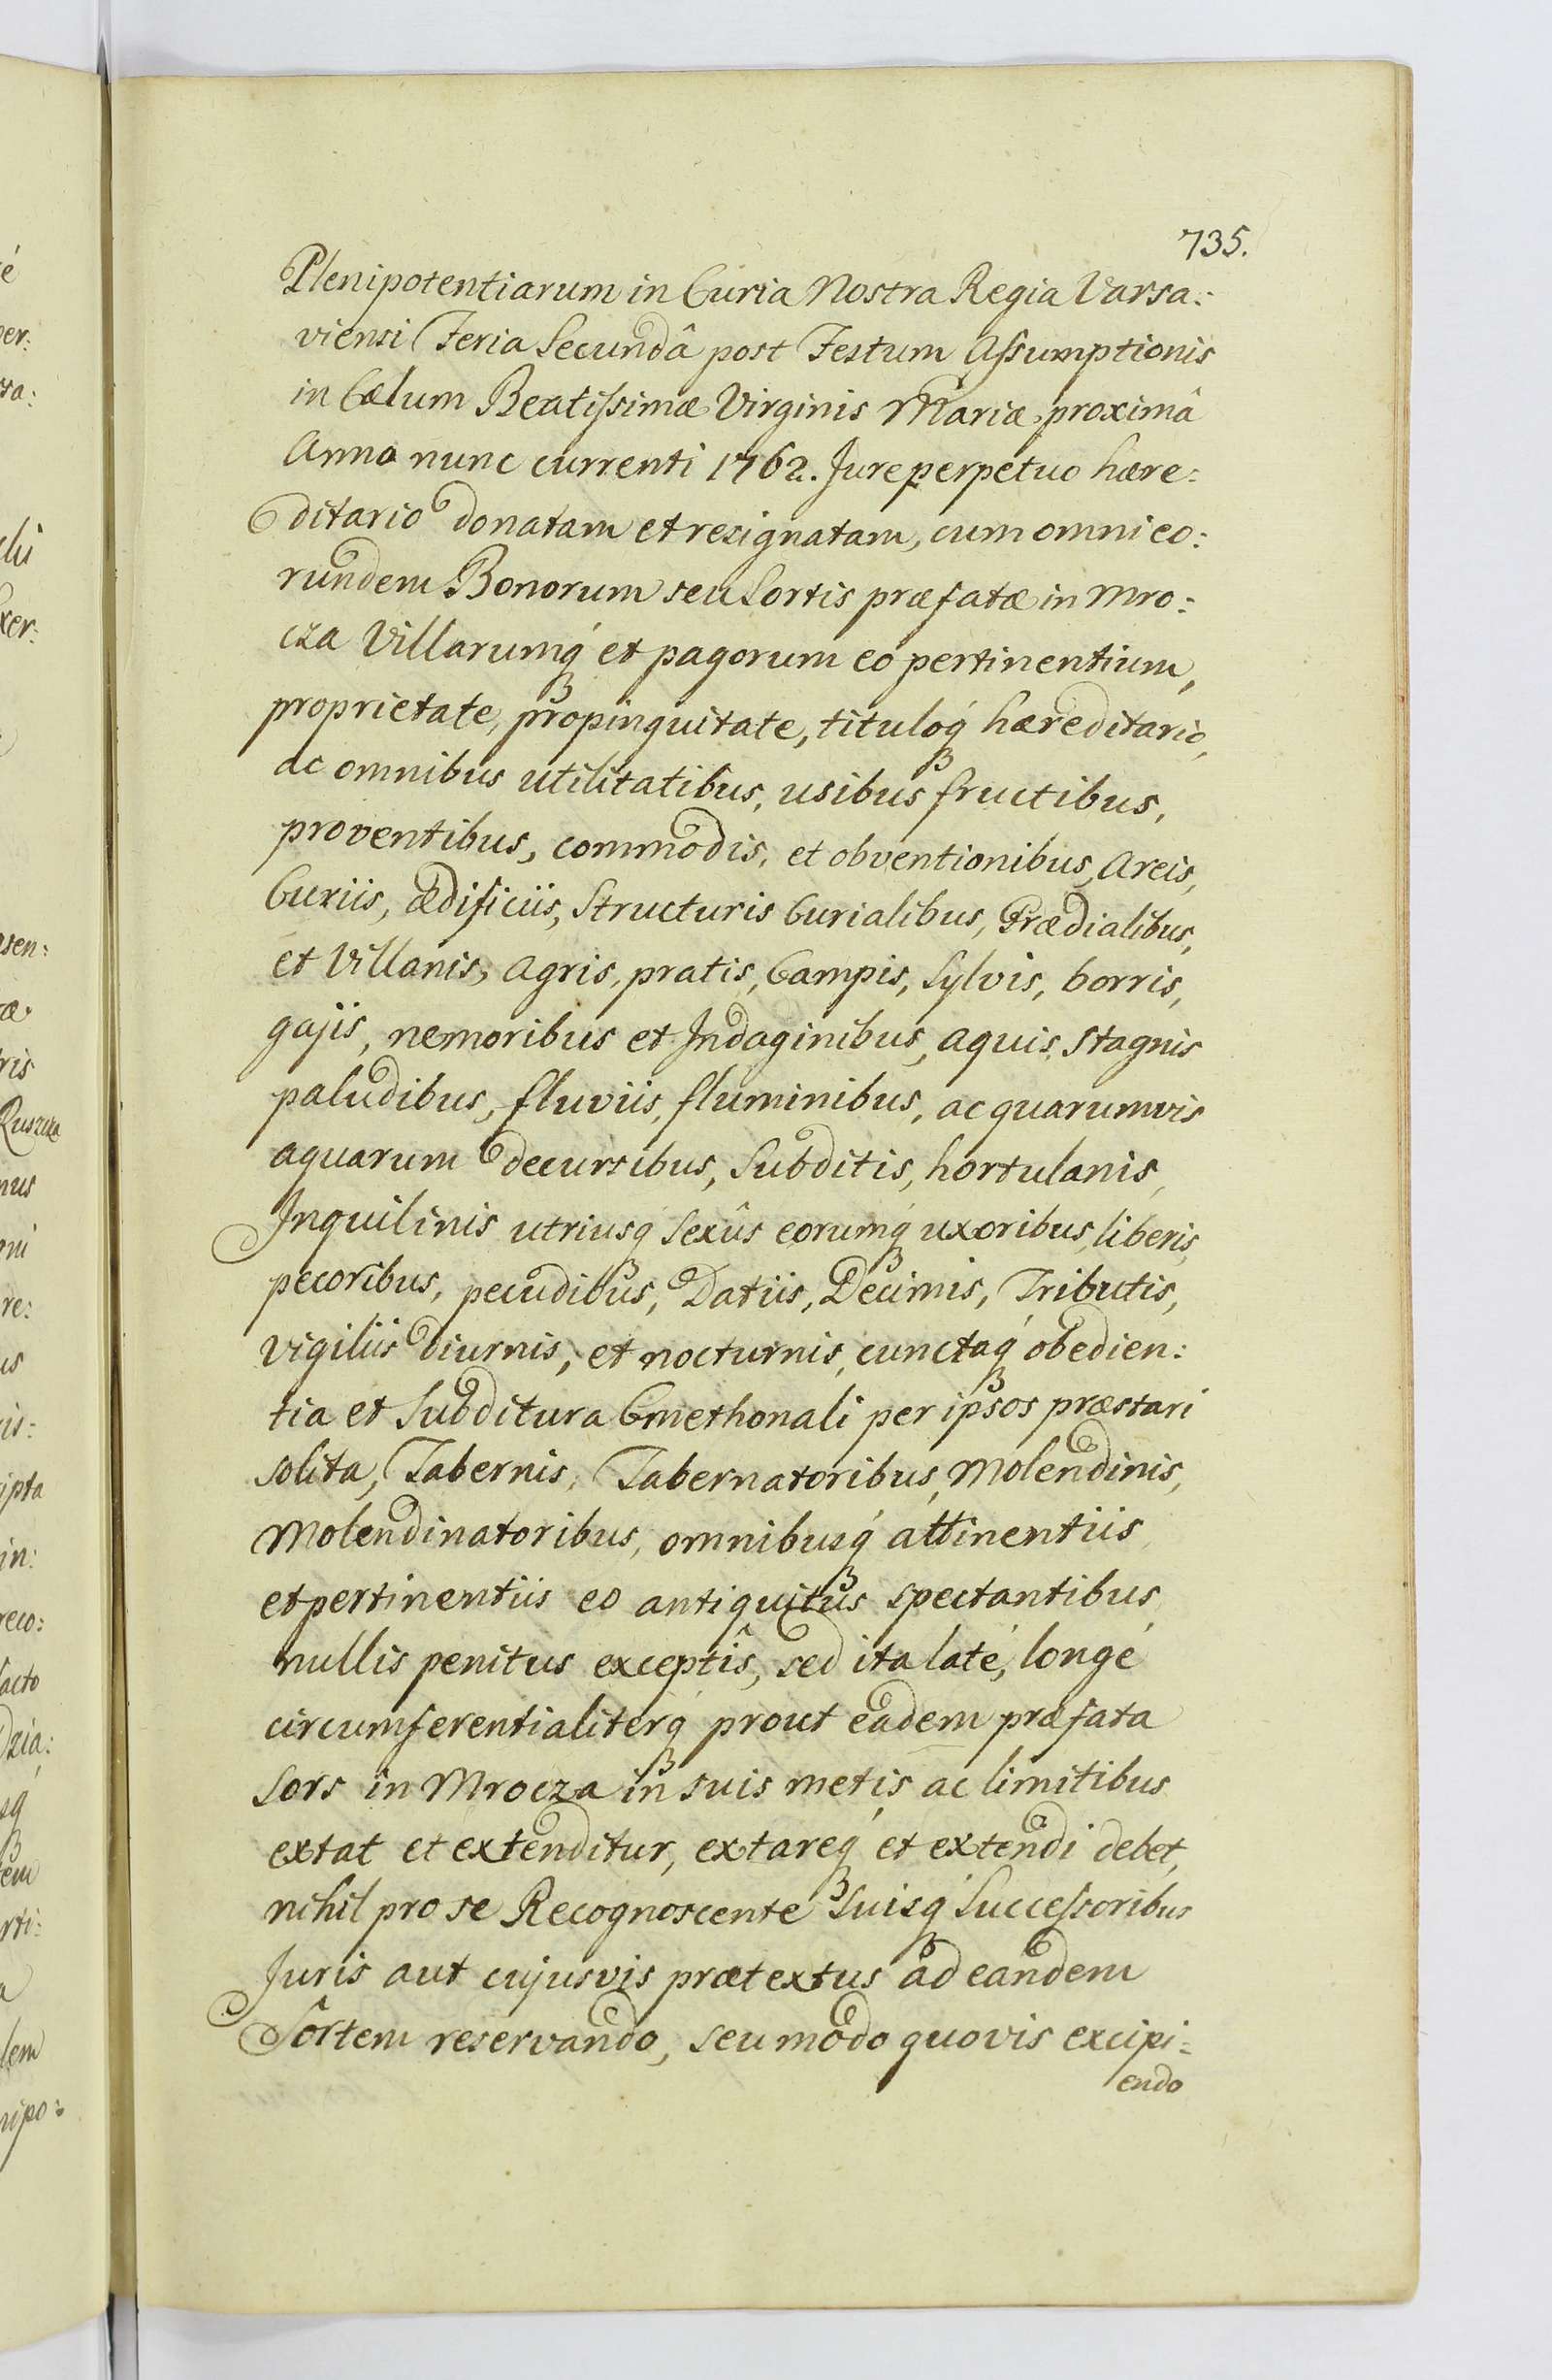 735.
Plenipotentiarum in Curia Nostra Regia Varsa:
viensi Feria Secundâ post Festum Aſsumptionis
in Cælum Beatiſsimæ Virginis Mariæ proximâ
Anno nunc currenti 1762. Jure perpetuo hære:
ditario donatam et resignatam, cum omni eo:
rundem Bonorum seu Sortis præfatæ in Mro:
cza Villarumq́ꝫ et pagorum eo pertinentium,
proprietate, propinquitate, tituloq́ꝫ hæreditario,
ac omnibus utilitatibus, usibus fructibus,
proventibus, commodis, et obventionibus, Areis,
Curiis, ædificiis, Structuris Curialibus, Prædialibus,
et Villanis, Agris, pratis, Campis, Sylvis, borris,
gajis, nemoribus et Indaginibus, aquis, stagnis
paludibus, fluviis, fluminibus, ac quarumvis
aquarum decursibus, Subditis, hortulanis,
Inquilinis utriusq́ꝫ Sexûs eorumq́ꝫ uxoribus, liberis,
pecoribus, pecudibus, Datiis, Decimis, Tributis,
vigiliis diurnis, et nocturnis, cunctaq́ꝫ obedien:
tia et Subditura Cmethonali per ipsos præstari
solita, Tabernis, Tabernatoribus, Molendinis,
Molendinatoribus, omnibusq́ꝫ attinentiis
et pertinentiis eo antiquitus spectantibus,
nullis penitus exceptis, sed ita laté, longé
circumferentialiterq́ꝫ prout eadem præfata
Sors in Mrocza in suis metis ac limitibus
extat et extenditur, extareq́ꝫ et extendi debet,
nihil pro se Recognoscente Suisq́ꝫ Succeſsoribus
Juris aut cujusvis prætextus ad eandem
Sortem reservando, seu modo quovis excipi:
endo